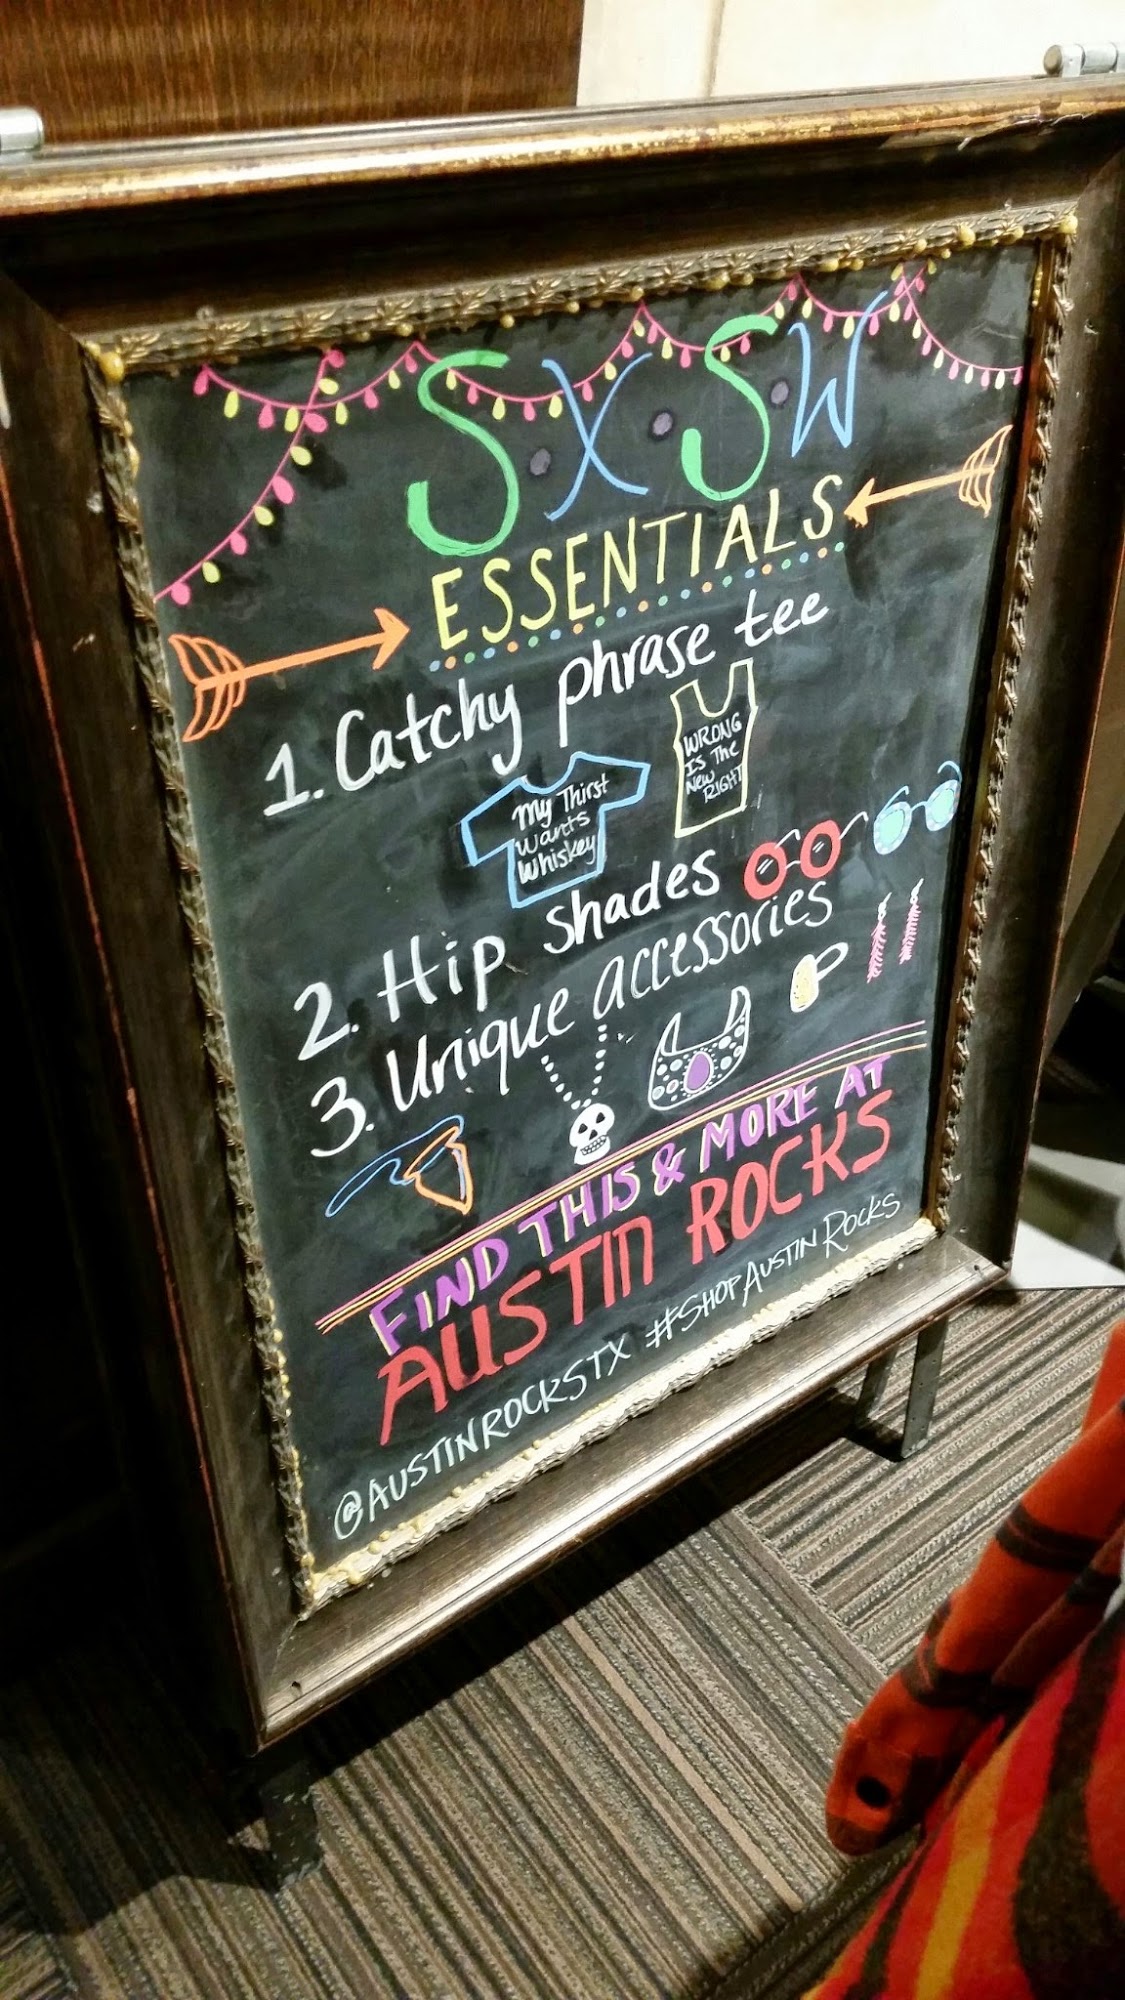 S·X·SW
ESSENTIALS
1. Catchy phrase tee
My Thirst
wants
Whiskey
WRONG
IS The
New
RIGHT
2. Hip shades
3. Unique accessories
FIND THIS & MORE AT
AUSTIN ROCKS
@AUSTINROCKSTX #SHOPAUSTINROCKS